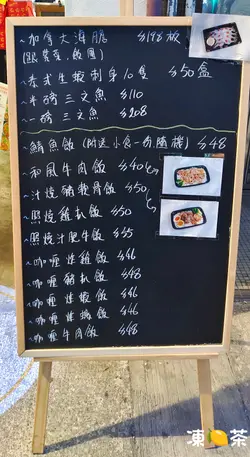 ~加拿大海膽 $198板
(跟紫菜，飯團)
~泰式生蝦刺身10隻 $50盒
~半磅三文魚 $110
~一磅三文魚 $208
~鰻魚飯 (附送小食一份隨機) $48
~和風牛肉飯 $40
~汁燒豬軟骨飯 $50
~照燒雞扒飯 $50
~照燒汁肥牛飯 $45
~咖喱炸雞飯 $46
~咖喱豬扒飯 $48
~咖喱炸蝦飯 $46
~咖喱炸蠔飯 $46
~咖喱牛肉飯 $48
凍🍋茶